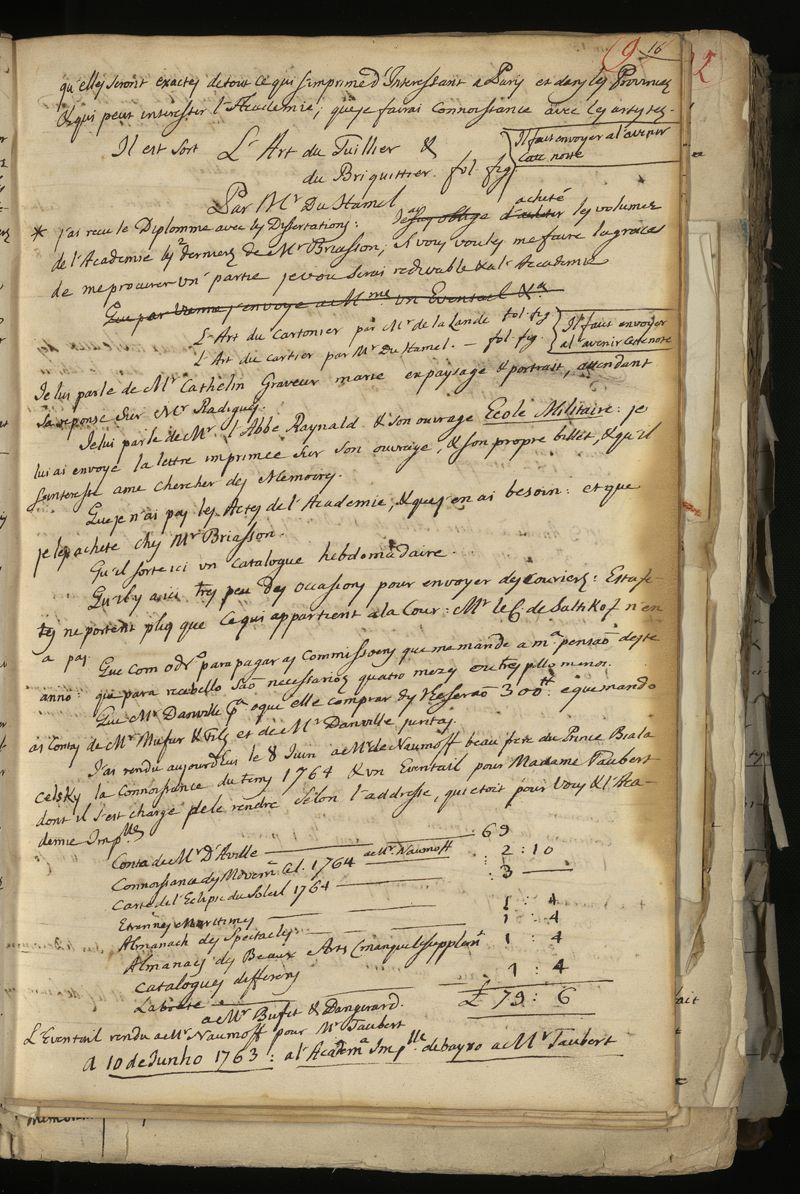 16
qu'elles seront exactes de tout ce qui s'imprime d'Interessant a Paris et dans les Provinces
& qui peut interesser l'Academie; que je fairai connoissance avec les artistes.
Il est sort L'Art du Tuillier &
du Briquittier. fol. fig
Il faut envoyer a l'avenir
cette notte
Par Mr. Du Hamel
* j'ai recu le Diplomme avec les Dissertations: acheté les volumes
de l'Academie les 2 derniers de Mr Briasson, si vous voulez me faire la grace
de me procurer un' partie je vou serai redevable & a l'Accademie
Que par Vienne j'envoye a Mme un Eventail &a
L'Art du Cartonier par Mr de la Lande fol. fig
L'Art du cartier par Mr Du Hamel. — fol. fig.
Il faut envoyer
al'avenir cete notte
Je lui parle de Mr Cathelin Graveur marie en paysage & portrait, attendant
sa reponse sur Mr Radigues.
Je lui parle de Mr l'Abbé Raynald & son ouvrage Ecole Militaire: je
lui ai envoye la lettre imprimée sur son ouvraige, & son propre billet, & qu'il
s'interesse a me chercher des Memoires.
Que je n'ai pas les Actes de l'Academie, & que j'en ai besoin: et que
je les achete chez Mr Briasson.
Qu'il sorte ici un catalogue hebdomadaire.
Qu'il y a ici tres peu des occasions pour envoyer des Couriers: Estafe-
tes ne portent plus que ce qui appartient a la Cour: Mr le C. de Saltikof n'en
a pas.
Que com odro para pagar as Commissoens que me mande a ma pensaõ deste
anno: que para recebello saõ necessarios quatro mezes ou tres pllo menos.
Que Mr Danville pa o que elle comprar des reseraõ 300tt: e que mando
as Contas de Mr Mufur & Fils et de Mr Danville juntas.
J'ai rendu aujourd'hui le 8 Juin a Mr de Naumoff beau frere du Prince Biala
celsky la Connoissance du tems 1764 & un Eventail pour Madame Taubert
dont il s'est chargé de le rendre selon l'addresse, qui etoit pour Vous & l'Aca-
demie Implle
Conta de Mr D'Aville — 69
Connoissance des Movemts Cel. 1764 a Mr. Naumoff : 2 : 10
Carte de l'Eclipse du Soleil 1764 — : 3 —
Etrennes Maritimes — 1 : 4
Almanach des Spectacles — 1 : 4
Almanacs des Beaux Arts — 1 : 4
Catalogues differens
1 : 4
a Mr Bufet & Dangirard. £ 79 : 6
L'Eventail rendu a Mr Naumoff pour Me Taubert
A 10 de Junho 1763: a l'Academa Implle. debayxo a Mr Taubert